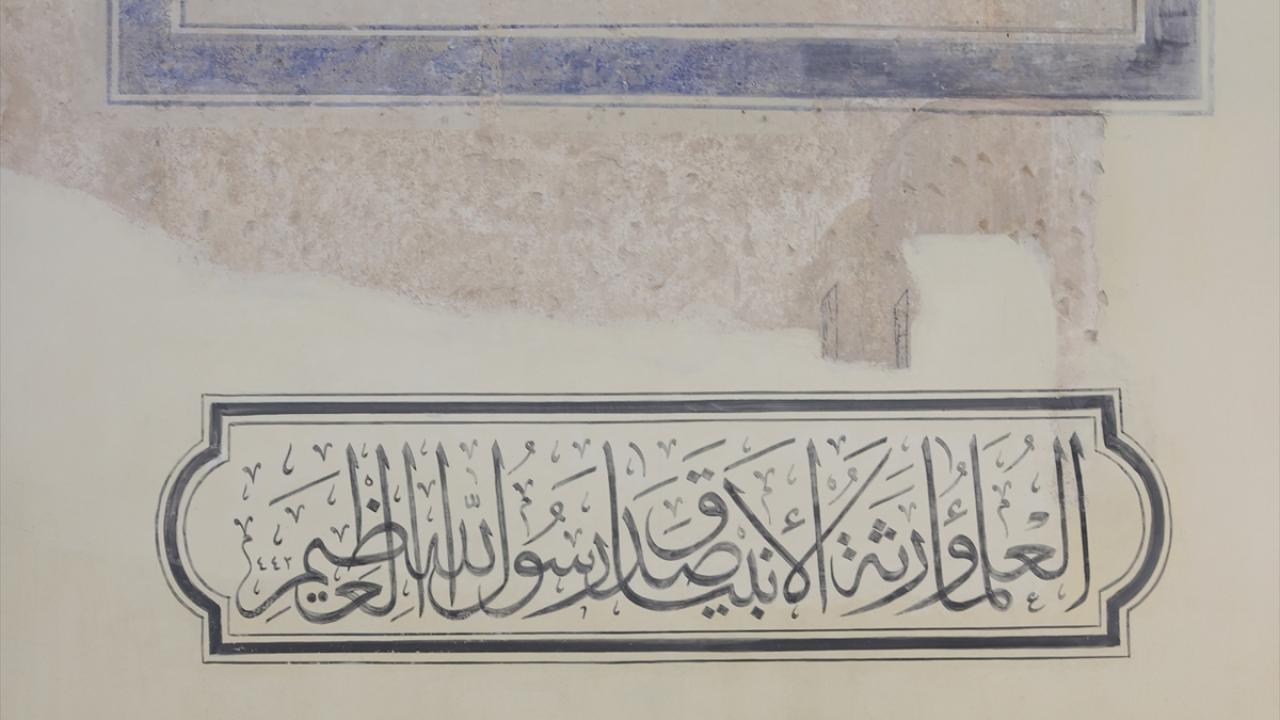 العلماء وارثة الأنبيا صدق رسول الله العظيم ٤٤٢